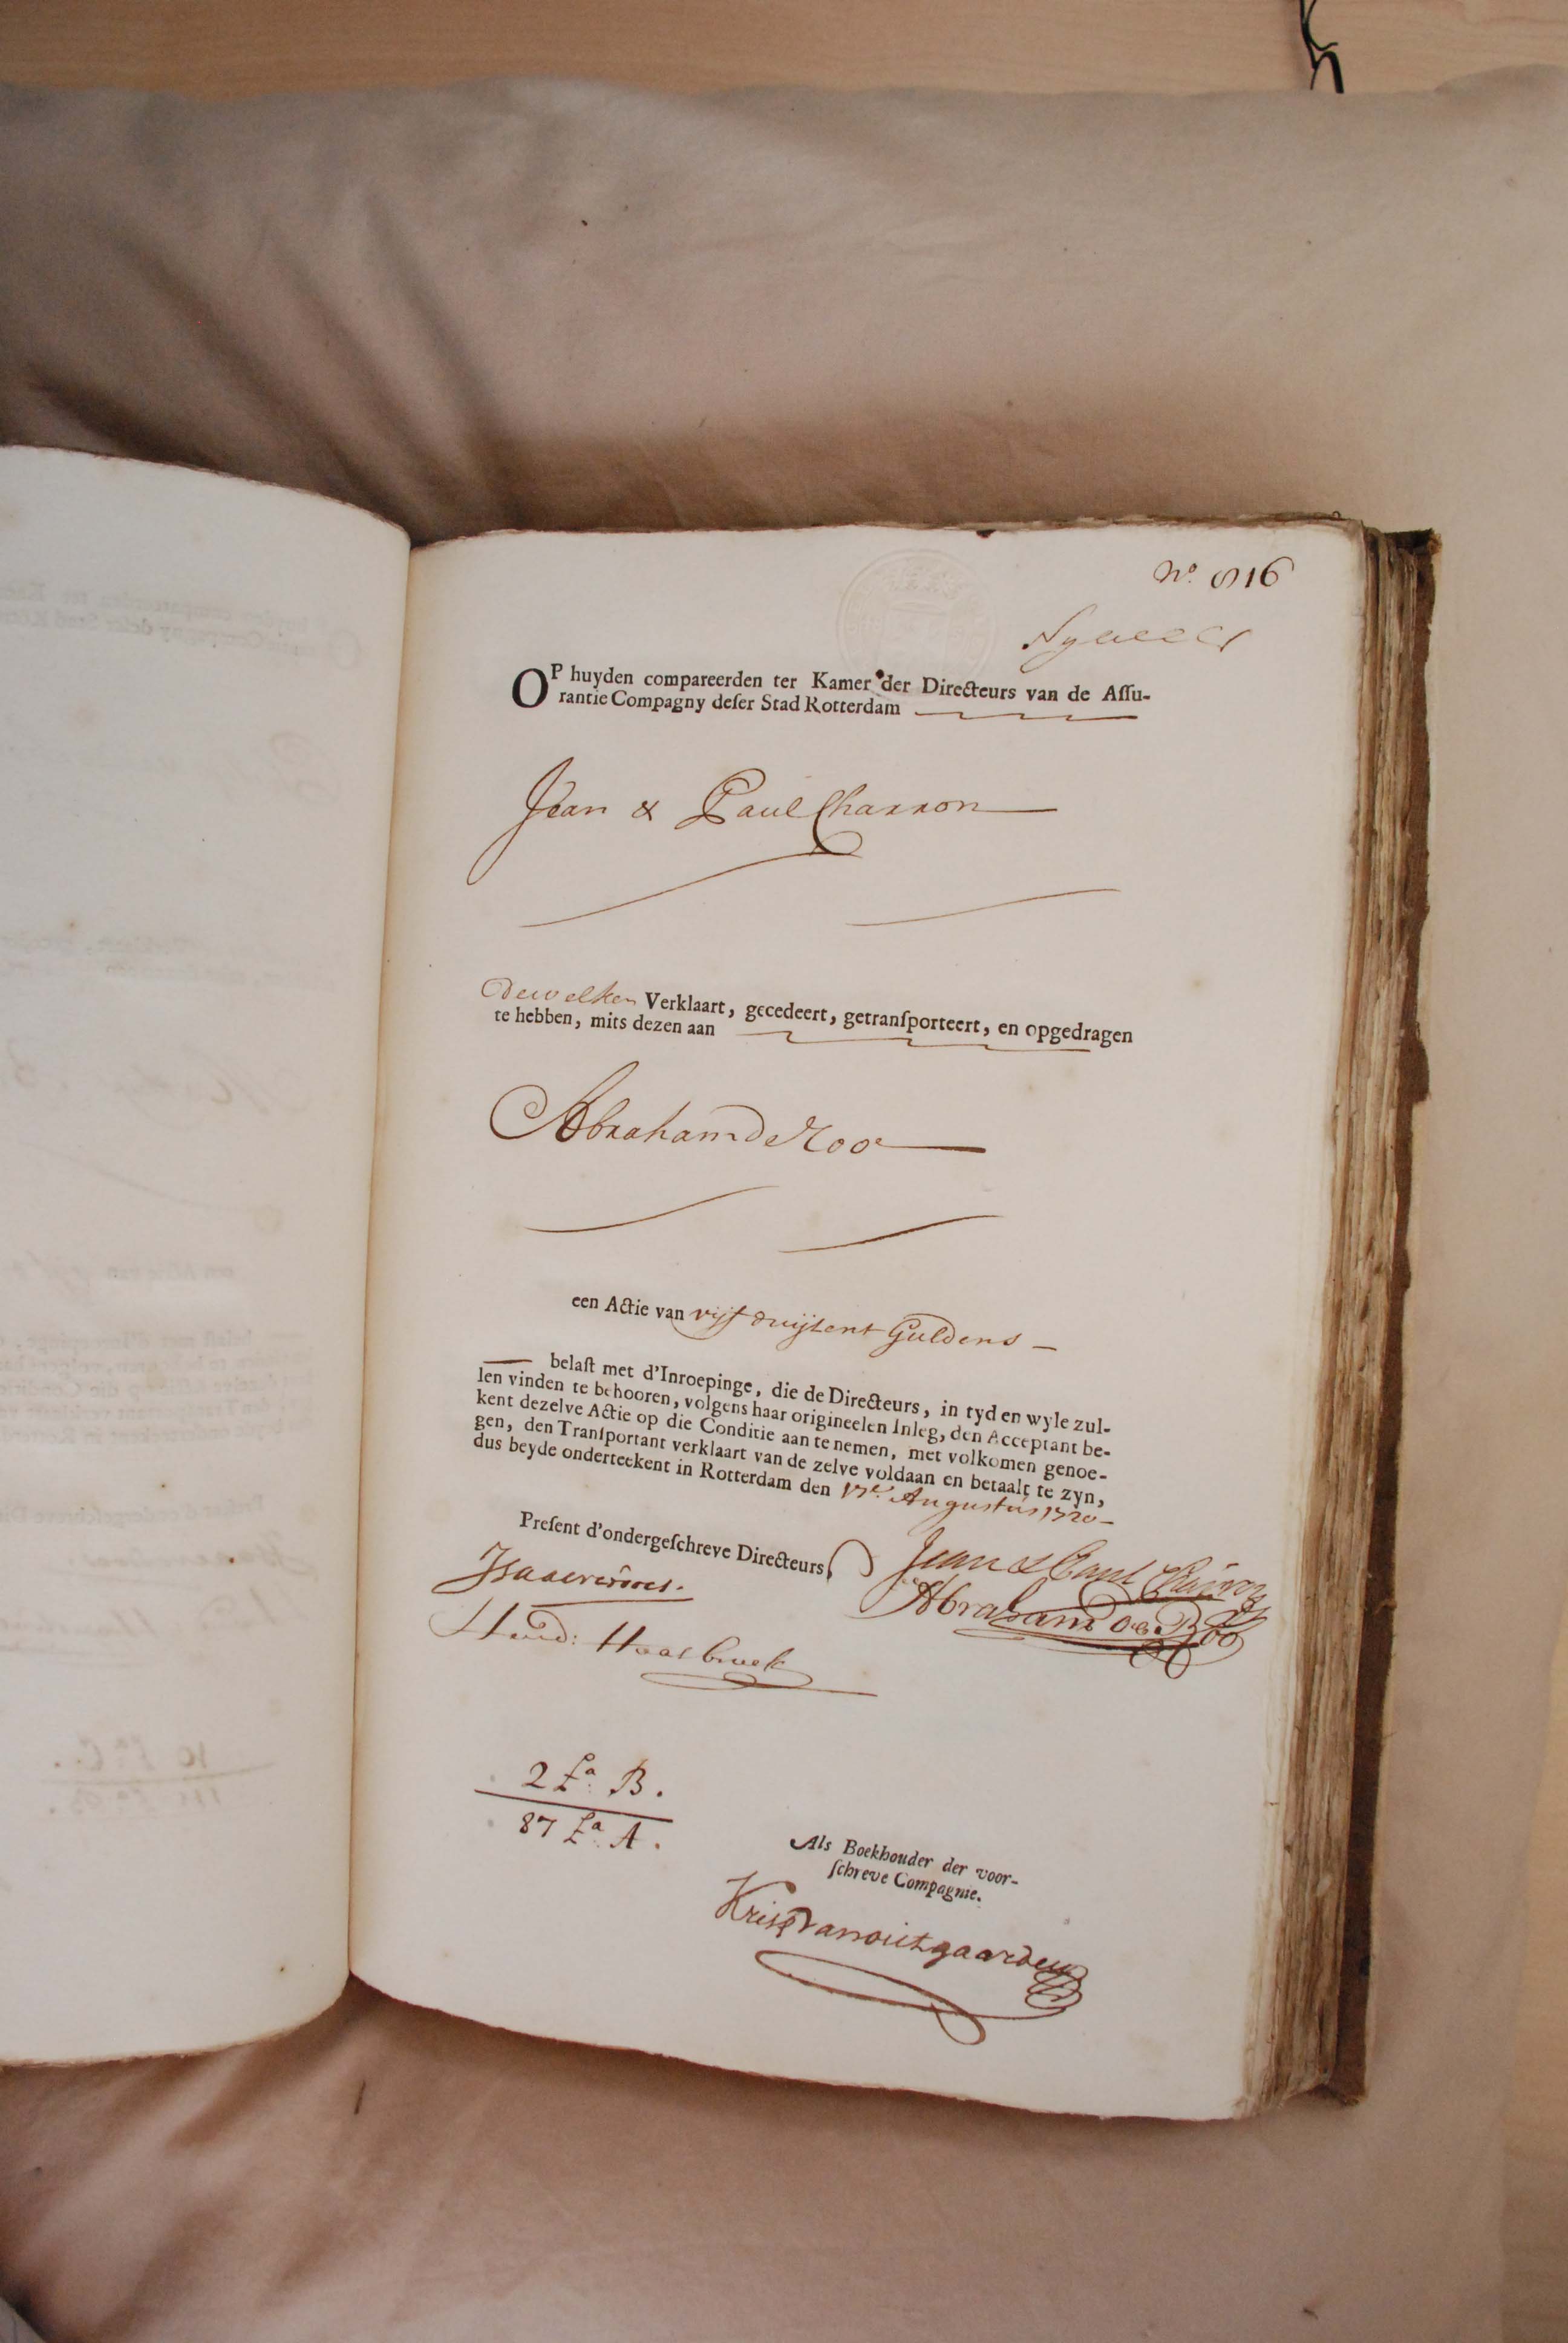 No. 816
OP huyden compareerden ter Kamer der Directeurs van de Assu-
rantie Compagny deser Stad Rotterdam
Jean & Paul Charron
Dewelken Verklaart, gecedeert, getransporteert, en opgedragen
te hebben, mits dezen aan
Abraham de Roo
een Actie van vijf duijsent Guldens
belast met d'Inroepinge, die de Directeurs, in tyd en wyle zul-
len vinden te behooren, volgens haar origineelen Inleg, den Acceptant be-
kent dezelve Actie op die Conditie aan te nemen, met volkomen genoe-
gen, den Transportant verklaart van de zelve voldaan en betaalt te zyn,
dus beyde onderteekent in Rotterdam den 17e. Augustus 1720
Present d'ondergeschreve Directeurs
Jean & Paul Charron
Abraham de Roo
2 La. B.
87 La. A.
Als Boekhouder der voor-
schreve Compagnie.